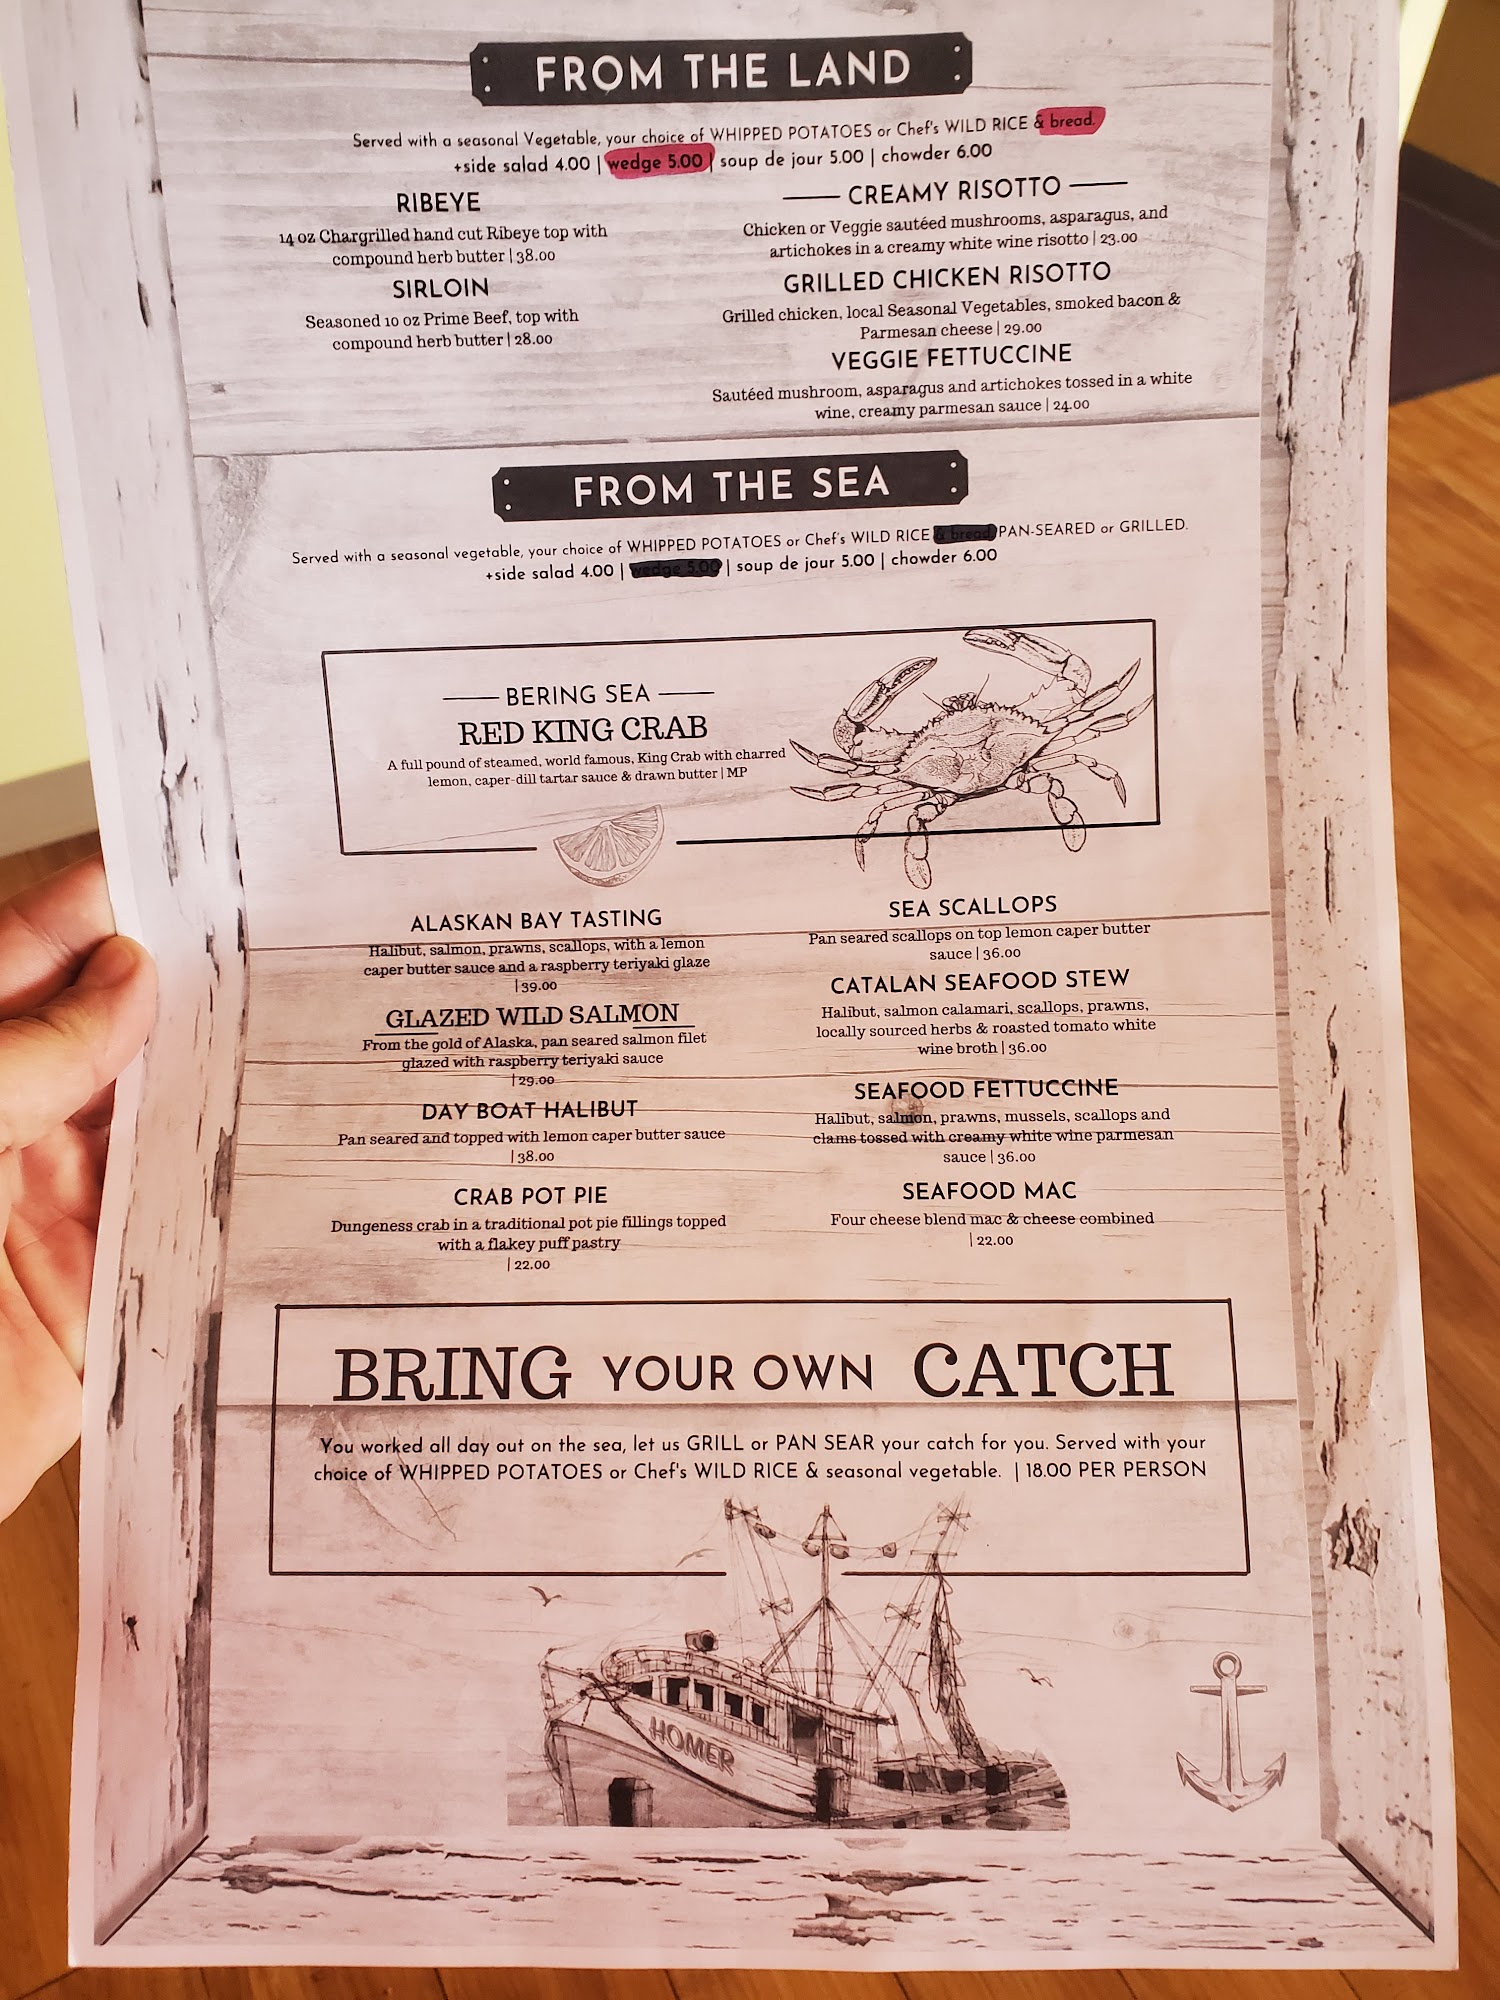 FROM THE LAND
Served with a seasonal Vegetable, your choice of WHIPPED POTATOES or Chef's WILD RICE & bread.
+side salad 4.00 | wedge 5.00 | soup de jour 5.00 | chowder 6.00
RIBEYE
14 oz Chargrilled hand cut Ribeye top with
compound herb butter | 38.00
SIRLOIN
Seasoned 10 oz Prime Beef, top with
compound herb butter | 28.00
CREAMY RISOTTO
Chicken or Veggie sautéed mushrooms, asparagus, and
artichokes in a creamy white wine risotto | 23.00
GRILLED CHICKEN RISOTTO
Grilled chicken, local Seasonal Vegetables, smoked bacon &
Parmesan cheese | 29.00
VEGGIE FETTUCCINE
Sautéed mushroom, asparagus and artichokes tossed in a white
wine, creamy parmesan sauce | 24.00
FROM THE SEA
Served with a seasonal vegetable, your choice of WHIPPED POTATOES or Chef's WILD RICE & bread. PAN-SEARED or GRILLED.
+side salad 4.00 | wedge 5.00 | soup de jour 5.00 | chowder 6.00
BERING SEA
RED KING CRAB
A full pound of steamed, world famous, King Crab with charred
lemon, caper-dill tartar sauce & drawn butter | MP
ALASKAN BAY TASTING
Halibut, salmon, prawns, scallops, with a lemon
caper butter sauce and a raspberry teriyaki glaze
| 39.00
GLAZED WILD SALMON
From the gold of Alaska, pan seared salmon filet
glazed with raspberry teriyaki sauce
| 29.00
DAY BOAT HALIBUT
Pan seared and topped with lemon caper butter sauce
| 38.00
CRAB POT PIE
Dungeness crab in a traditional pot pie fillings topped
with a flakey puff pastry
| 22.00
SEA SCALLOPS
Pan seared scallops on top lemon caper butter
sauce | 36.00
CATALAN SEAFOOD STEW
Halibut, salmon calamari, scallops, prawns,
locally sourced herbs & roasted tomato white
wine broth | 36.00
SEAFOOD FETTUCCINE
Halibut, salmon, prawns, mussels, scallops and
clams tossed with creamy white wine parmesan
sauce | 36.00
SEAFOOD MAC
Four cheese blend mac & cheese combined
| 22.00
BRING YOUR OWN CATCH
You worked all day out on the sea, let us GRILL or PAN SEAR your catch for you. Served with your
choice of WHIPPED POTATOES or Chef's WILD RICE & seasonal vegetable. | 18.00 PER PERSON
HOMER